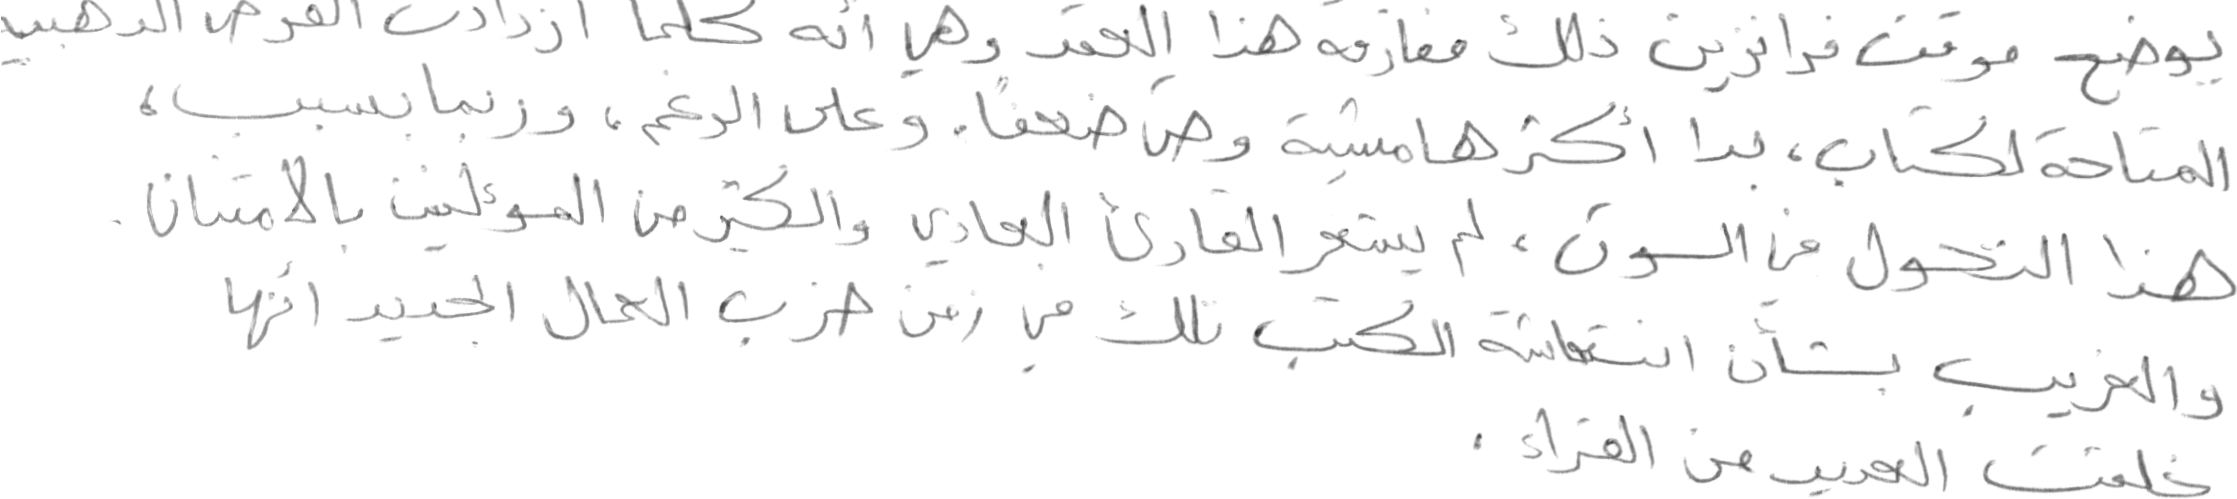 يوضح موقف فرانزين ذلك مفارقة هذا العقد وهي أنه كلما ازدادت الفرص الذهبية
المتاحة لكتاب، بدا أكثر هامشية وضعفا. وعلى الرغم، وربما بسبب،
هذا التحول في السوق، لم يشعر القارئ العادي والكثير من المؤلفين بالامتنان.
والغريب بشأن انتعاشة الكتب تلك في زمن حزب العمال الجديد أنها
خلفت العديد من القراء.